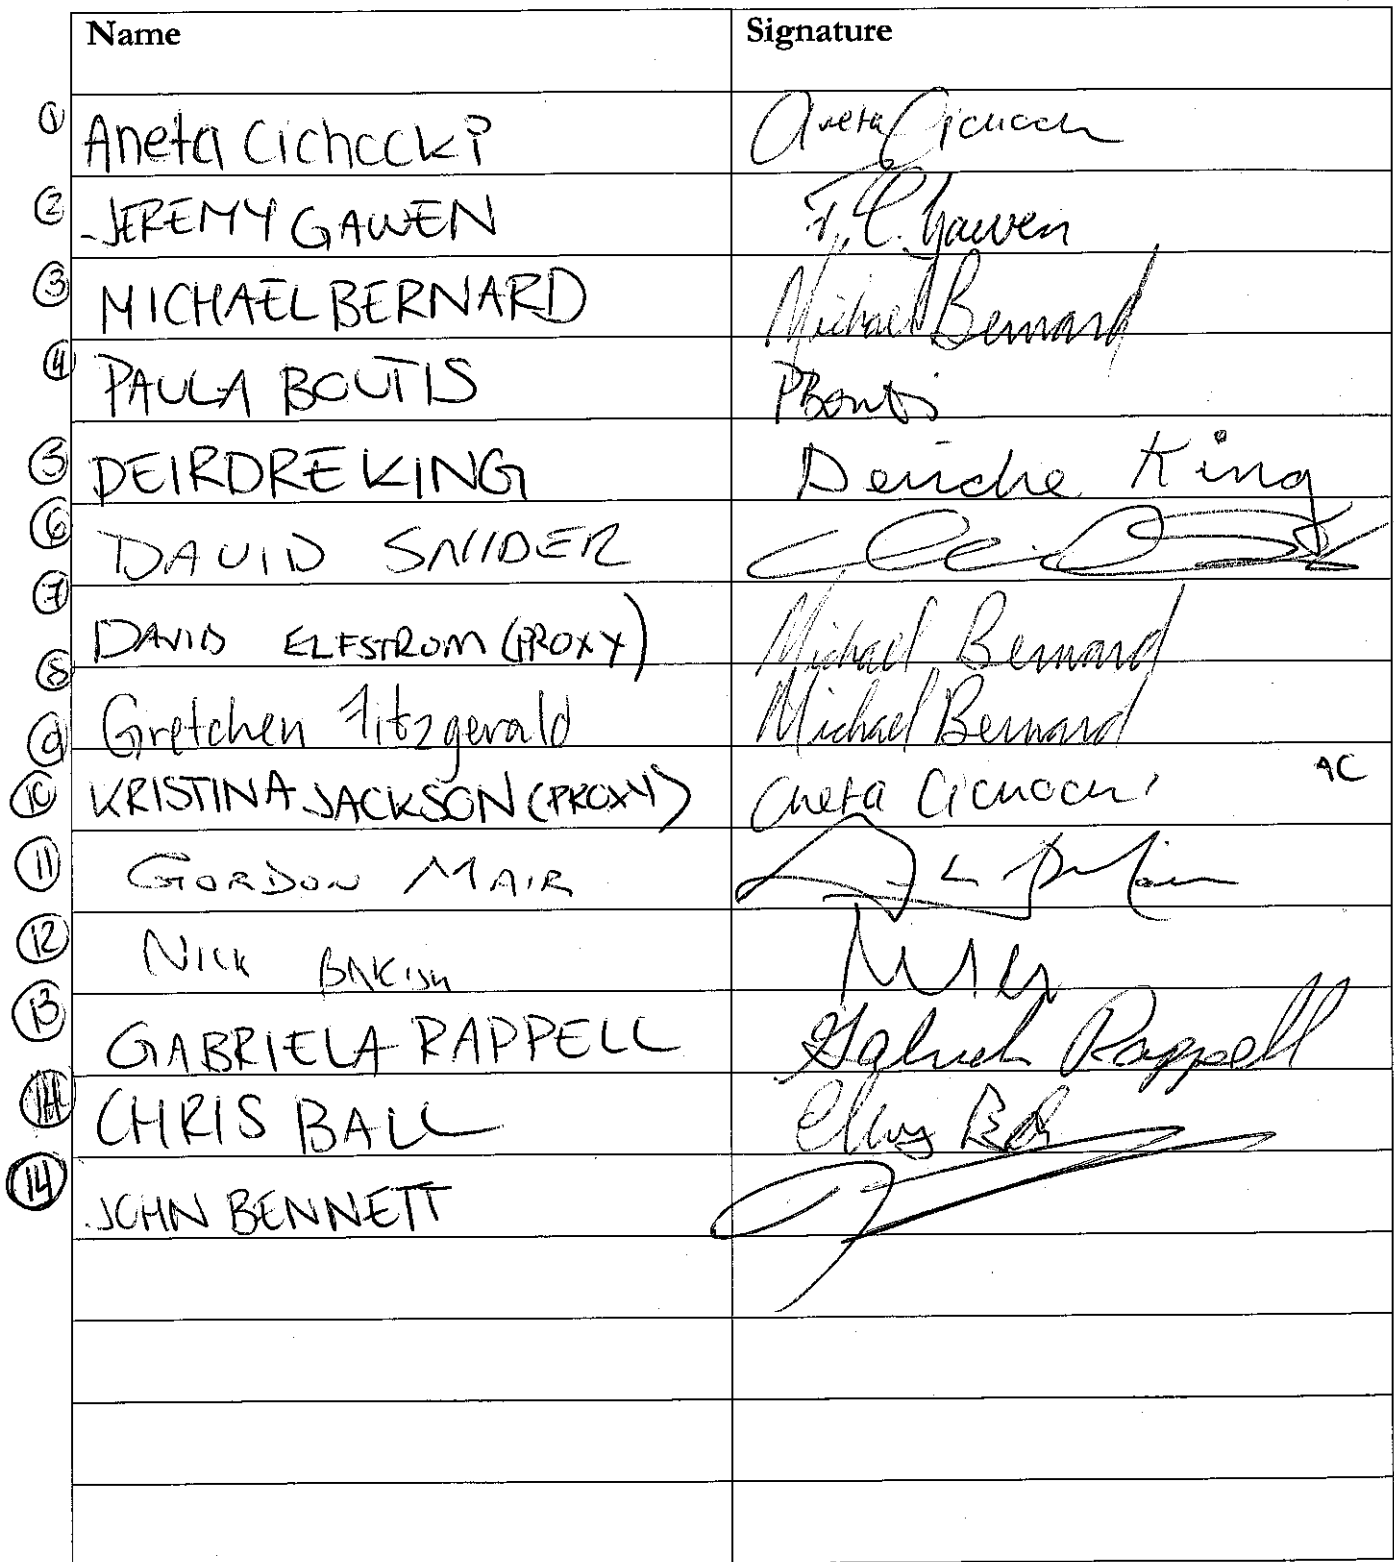 Name Signature
① Aneta Cichocki Aneta Cichocki
② JEREMY GAWEN J. C. Gawen
③ MICHAEL BERNARD Michael Bernard
④ PAULA BOUTIS PBoutis
⑤ DEIRDRE KING Deirdre King
⑥ DAVID SNIDER
⑦ DAVID ELFSTROM (PROXY) Michael Bernard
⑧ Gretchen Fitzgerald Michael Bernard
⑨
⑩ KRISTINA JACKSON (PROXY) Aneta Cichocki AC
⑪ GORDON MAIR
⑫ NICK
⑬ GABRIELA RAPPELL Gabriela Rappell
CHRIS BALL Chris Ball
⑭ JOHN BENNETT